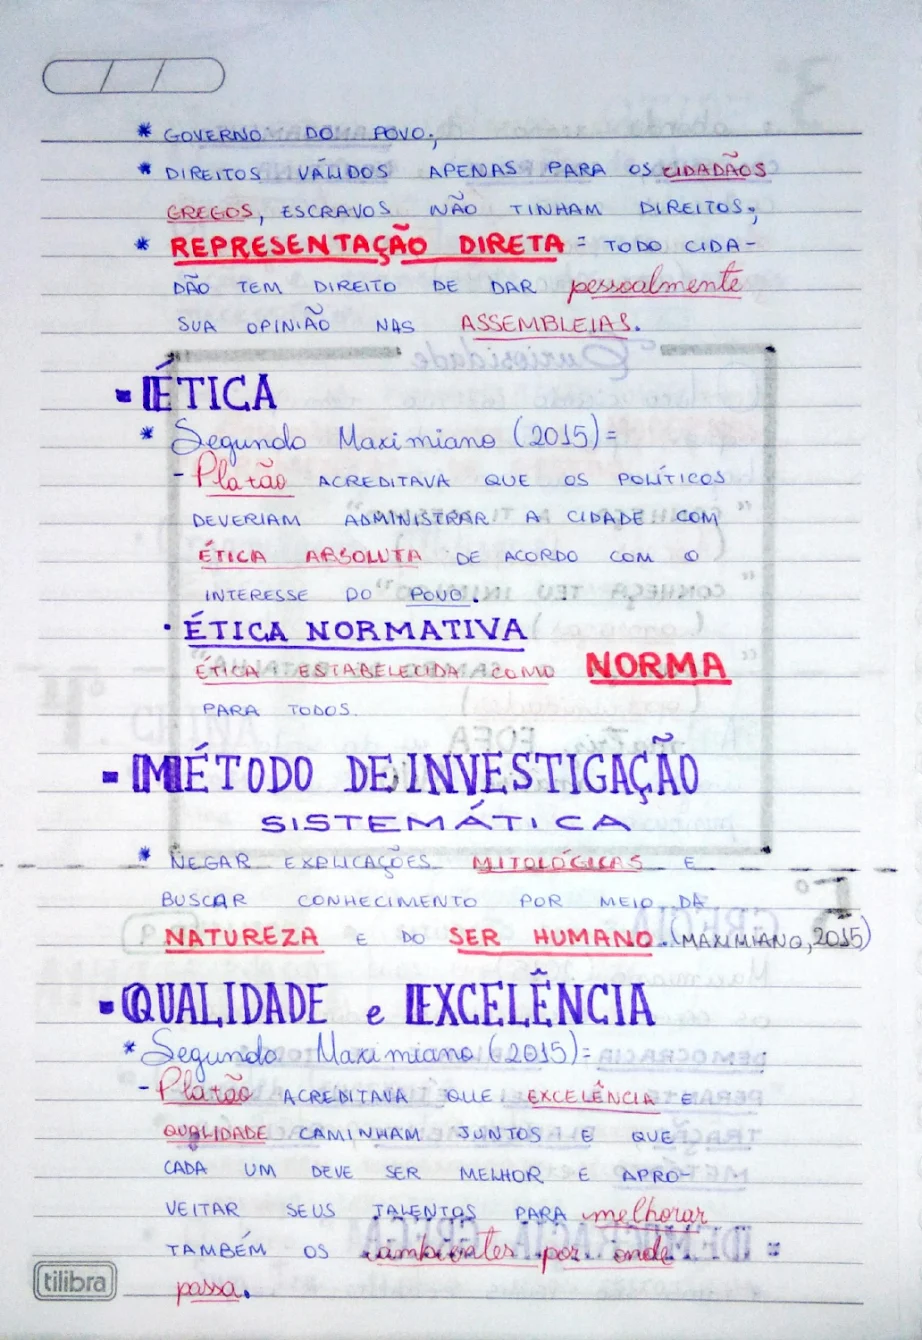 * GOVERNO DO POVO;
* DIREITOS VÁLIDOS APENAS PARA OS CIDADÃOS
GREGOS, ESCRAVOS NÃO TINHAM DIREITOS;
* REPRESENTAÇÃO DIRETA = TODO CIDA-
DÃO TEM DIREITO DE DAR pessoalmente
SUA OPINIÃO NAS ASSEMBLEIAS.
- ÉTICA
* Segundo Maximiano (2015)=
- Platão ACREDITAVA QUE OS POLÍTICOS
DEVERIAM ADMINISTRAR A CIDADE COM
ÉTICA ABSOLUTA DE ACORDO COM O
INTERESSE DO POVO.
· ÉTICA NORMATIVA
ÉTICA ESTABELECIDA COMO NORMA
PARA TODOS.
- MÉTODO DE INVESTIGAÇÃO
SISTEMÁTICA
* NEGAR EXPLICAÇÕES MITOLÓGICAS E
BUSCAR CONHECIMENTO POR MEIO DA
NATUREZA E DO SER HUMANO. (MAXIMIANO, 2015)
- QUALIDADE e EXCELÊNCIA
* Segundo Maximiano (2015)=
- Platão ACREDITAVA QUE EXCELÊNCIA E
QUALIDADE CAMINHAM JUNTOS E QUE
CADA UM DEVE SER MELHOR E APRO-
VEITAR SEUS TALENTOS PARA melhorar
TAMBÉM OS ambientes por onde
passa.
tilibra